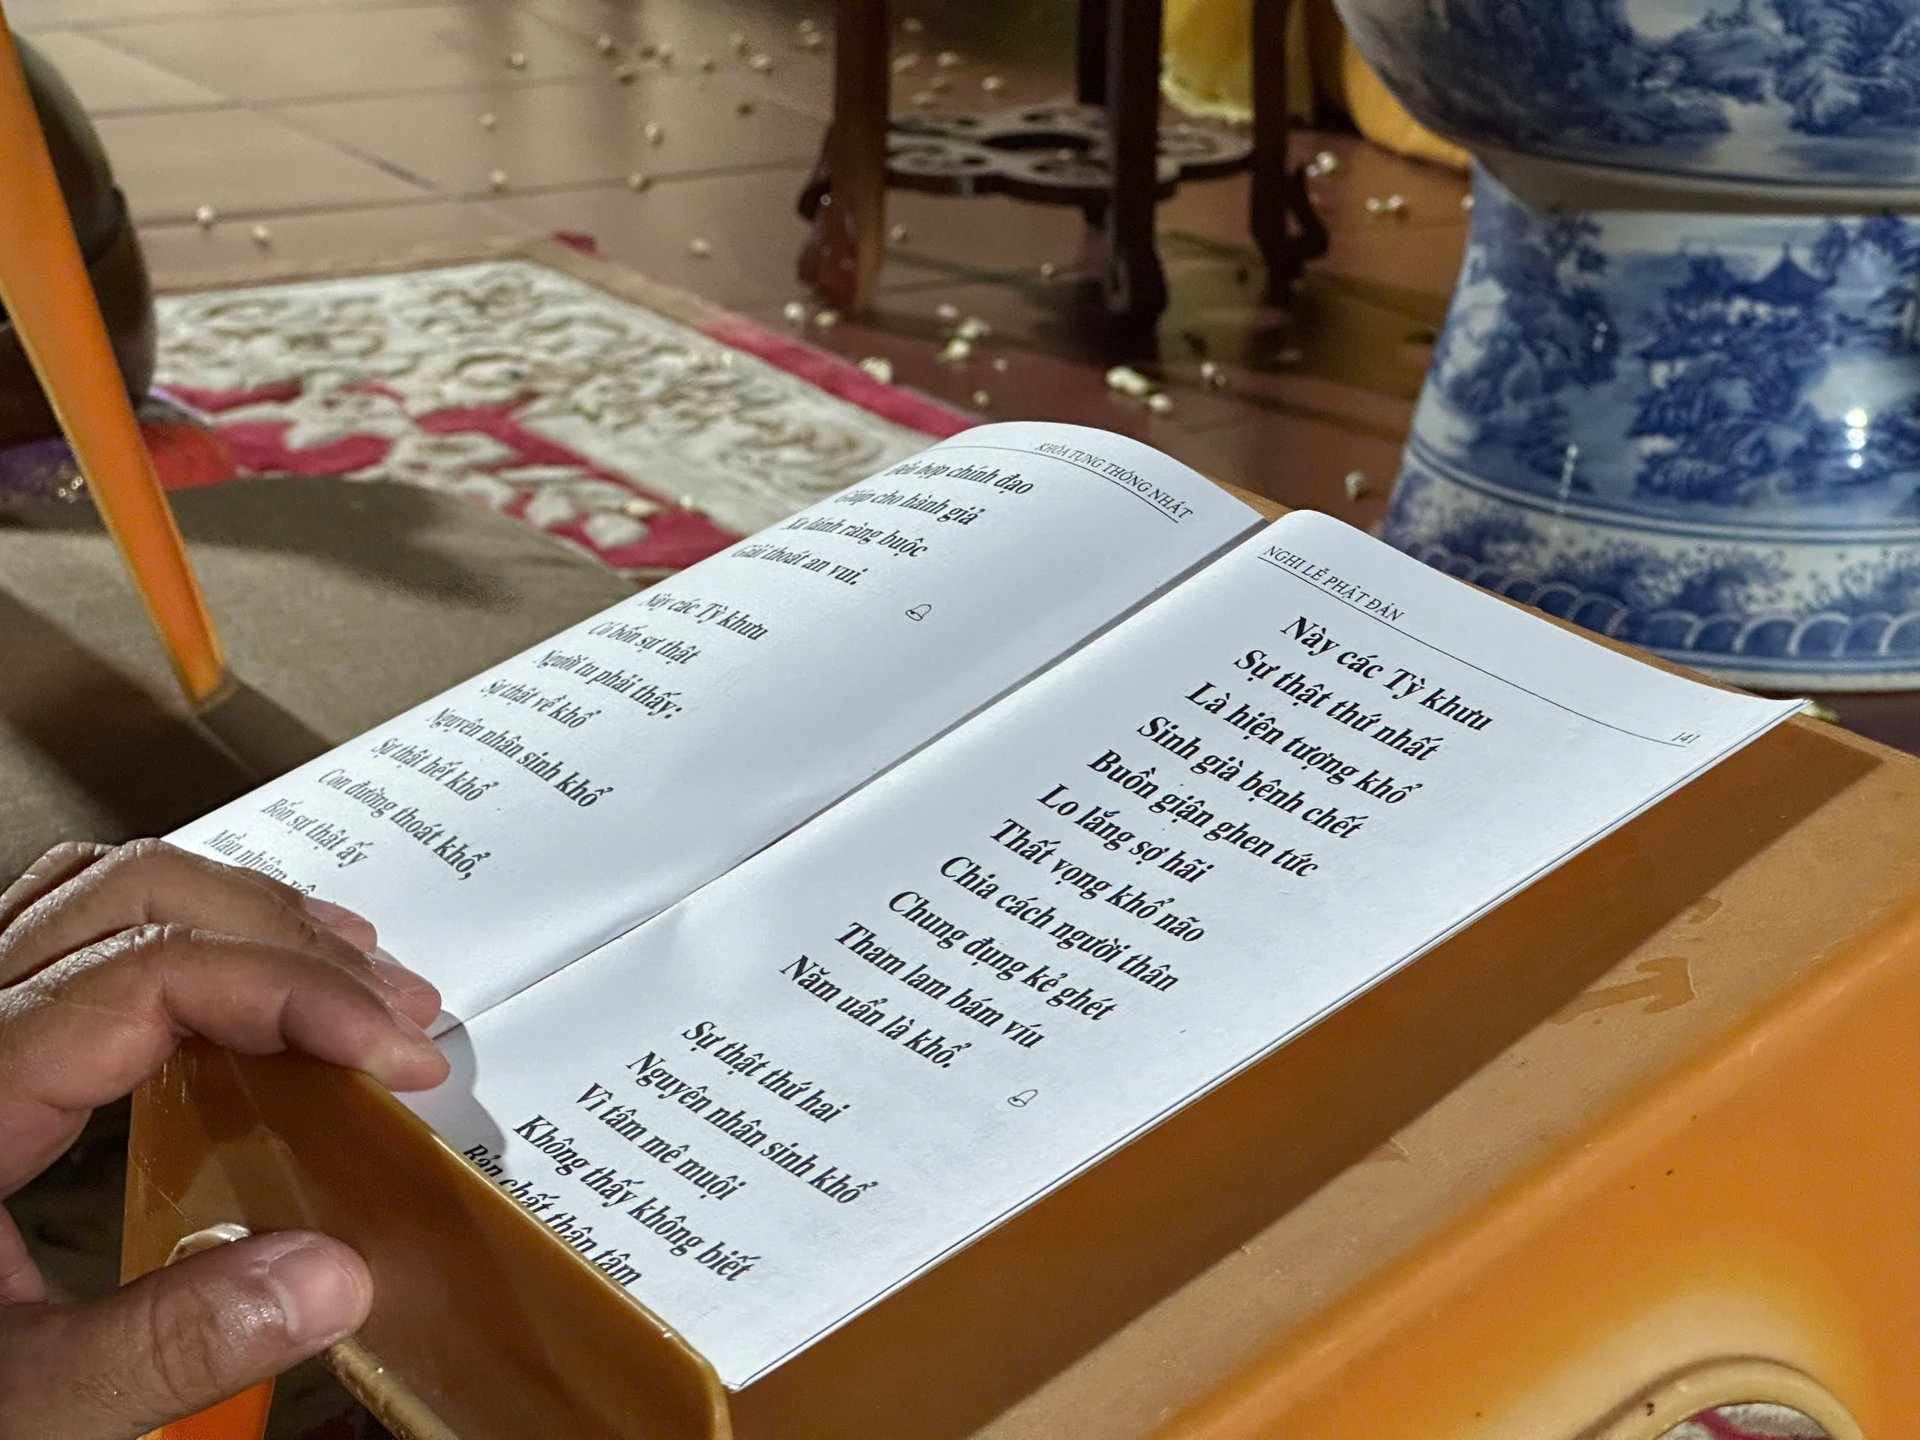 KHÓA TỤNG THỐNG NHẤT
hợp chính đạo
Giúp cho hành giả
Xa lánh ràng buộc
Giải thoát an vui.
Này các Tỳ khưu
Có bốn sự thật
Người tu phải thấy:
Sự thật về khổ
Nguyên nhân sinh khổ
Sự thật hết khổ
Con đường thoát khổ,
Bốn sự thật ấy
Mầu nhiệm
NGHI LỄ PHẬT ĐẢN
141
Này các Tỳ khưu
Sự thật thứ nhất
Là hiện tượng khổ
Sinh già bệnh chết
Buồn giận ghen tức
Lo lắng sợ hãi
Thất vọng khổ não
Chia cách người thân
Chung đụng kẻ ghét
Tham lam bám víu
Năm uẩn là khổ.
Sự thật thứ hai
Nguyên nhân sinh khổ
Vì tâm mê muội
Không thấy không biết
Bản chất thân tâm